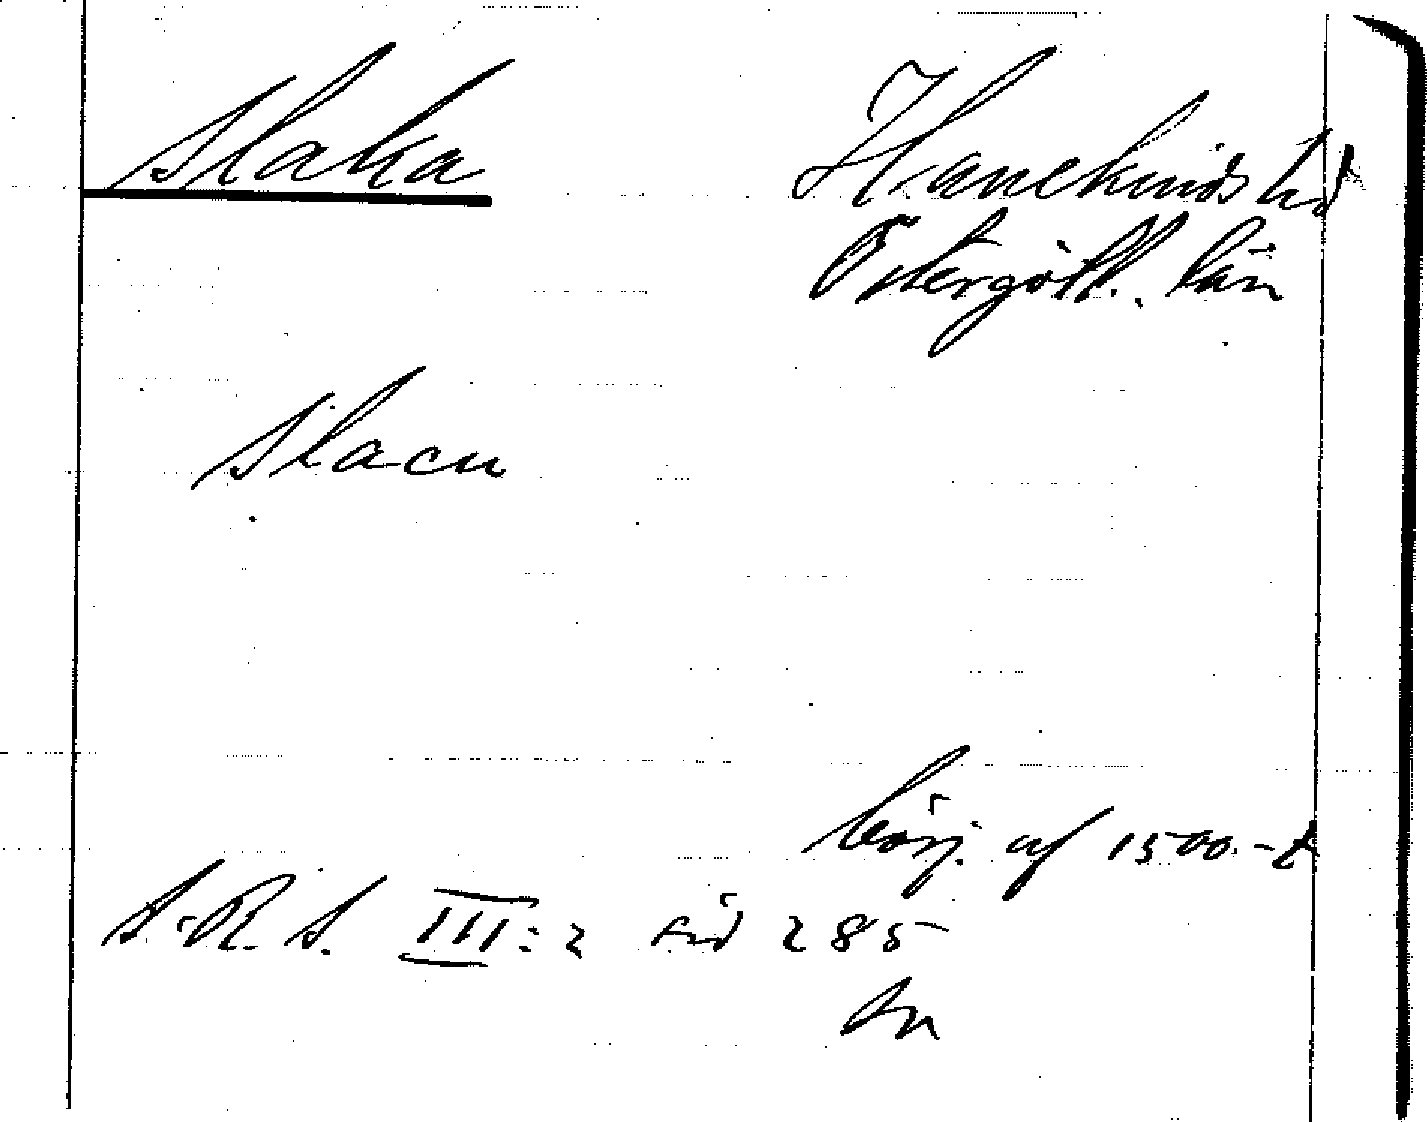 Slaka Hanekinds hd
Östergötl. län
Slacu
börj. af 1500-t
S.R.S. III:2 sid 285